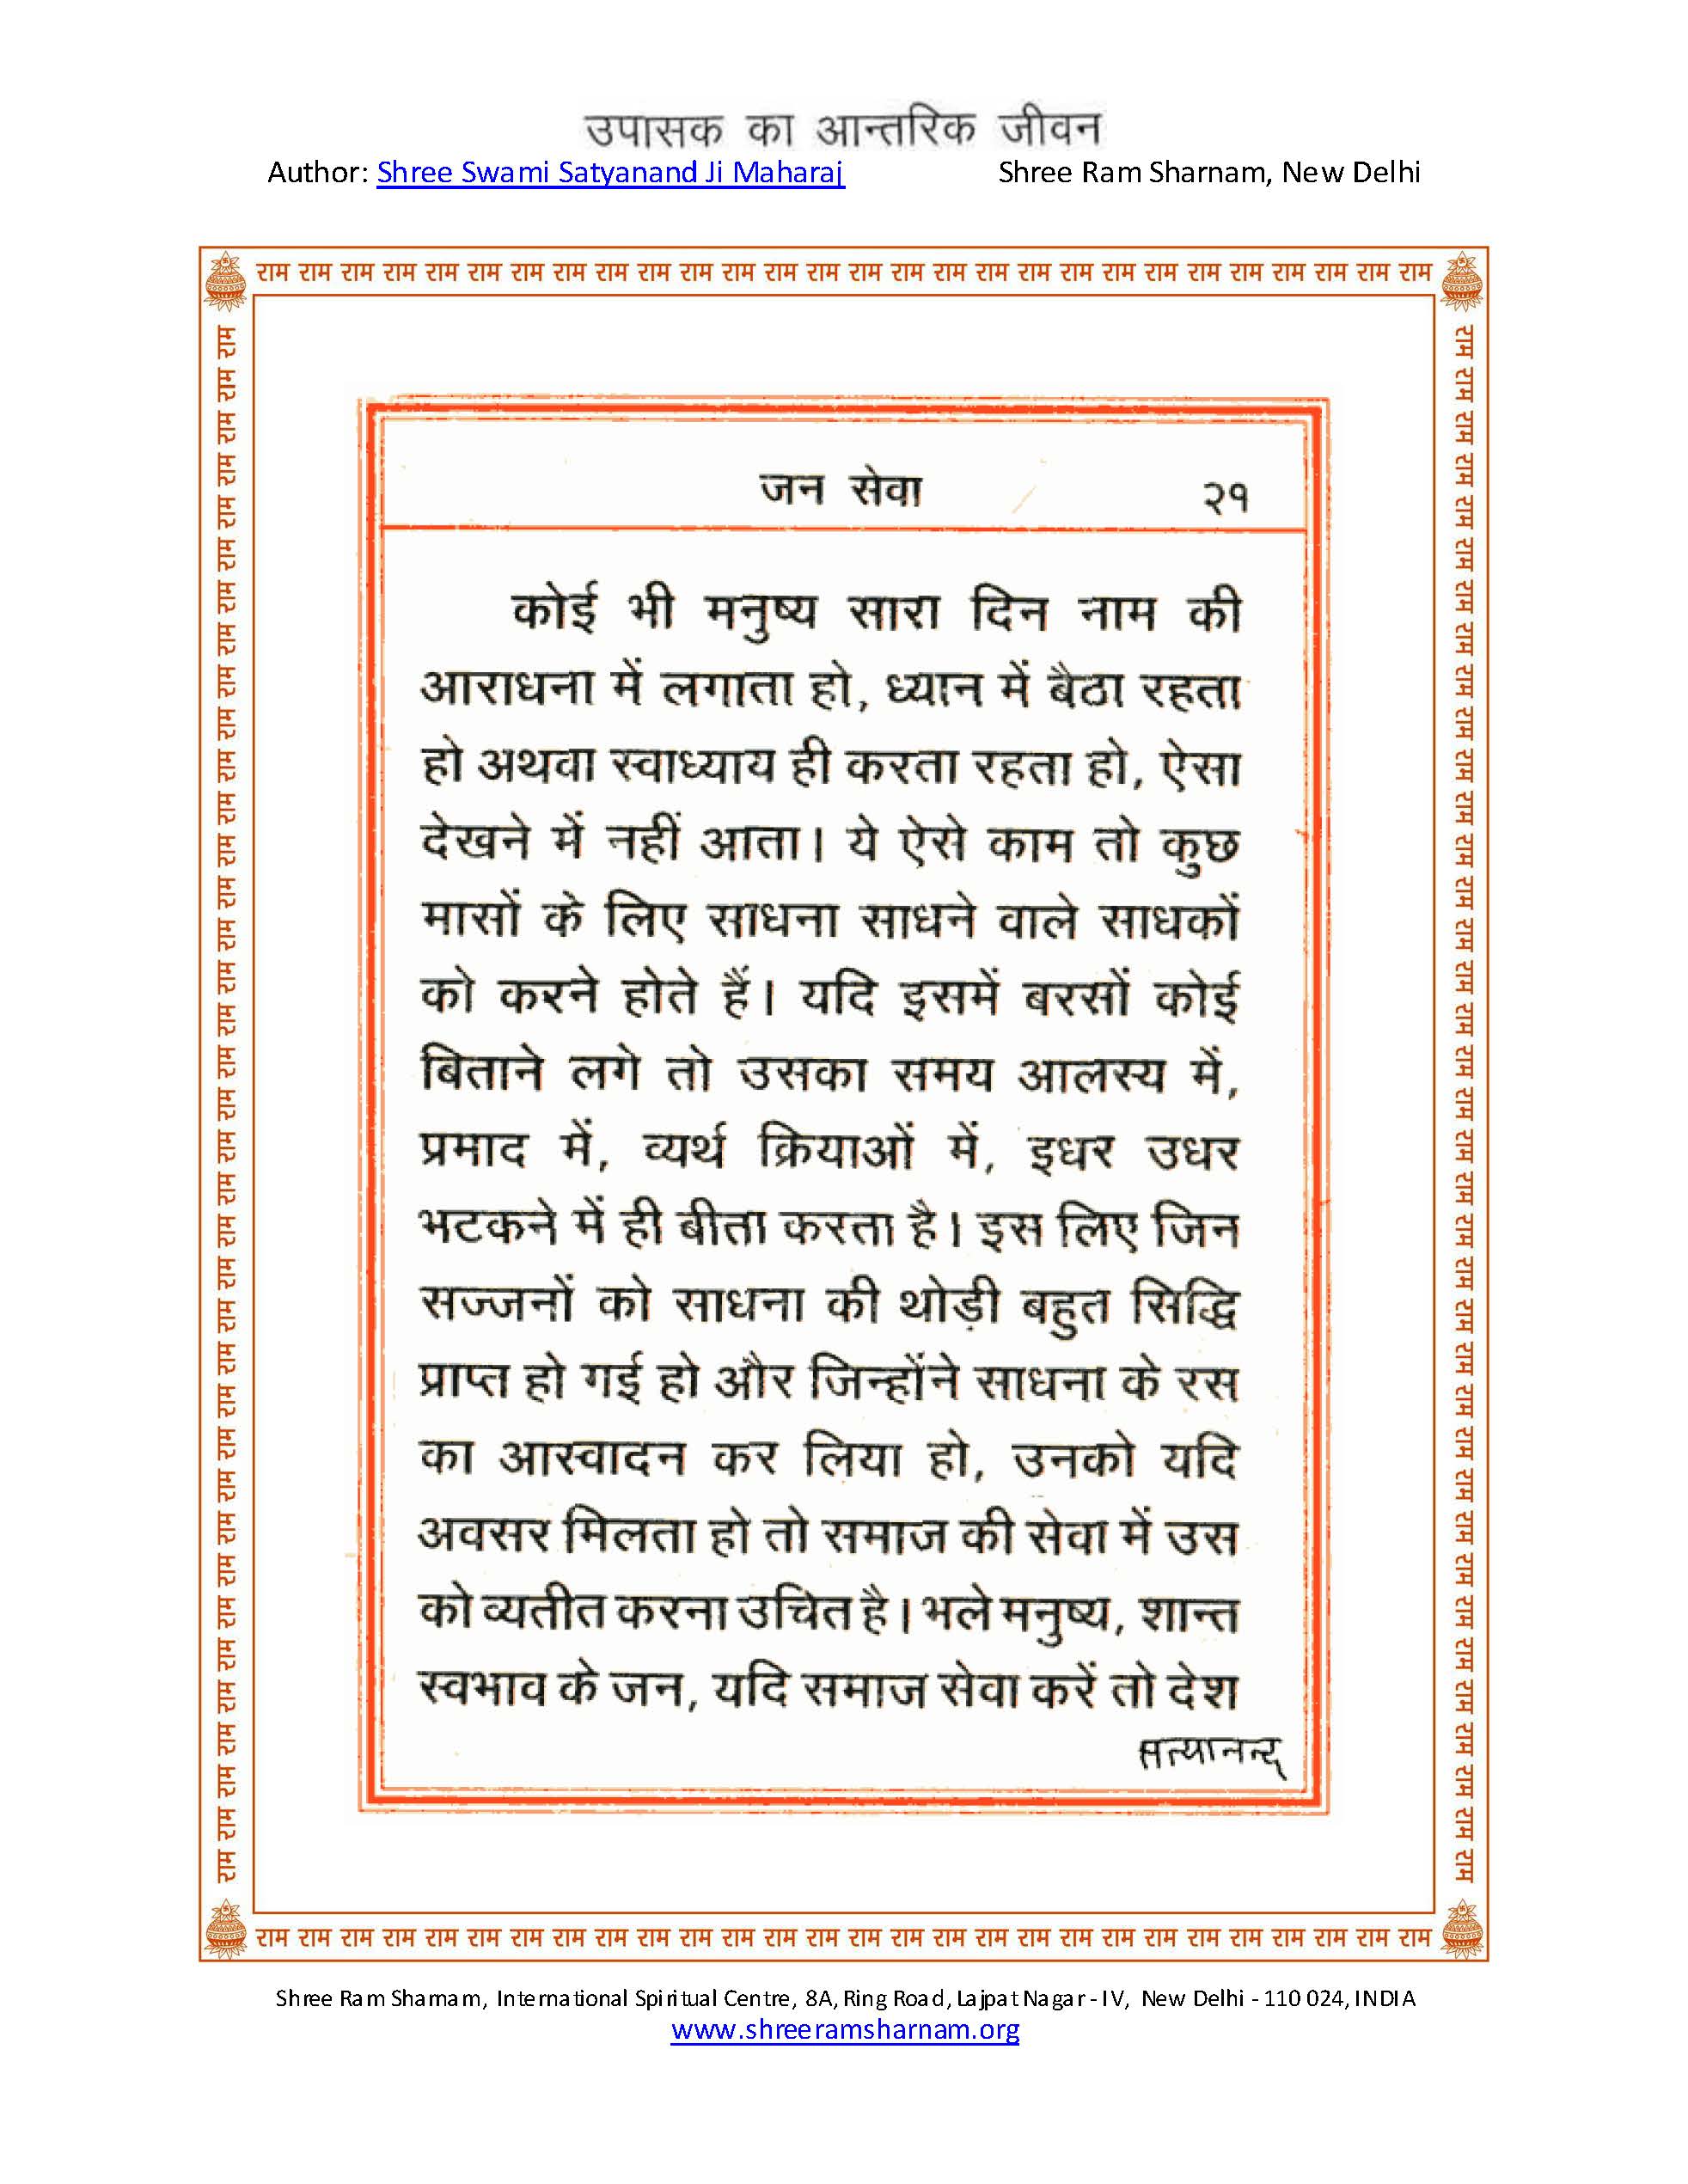 उपासक का आन्तरिक जीवन
Author: Shree Swami Satyanand Ji Maharaj Shree Ram Sharnam, New Delhi
राम राम राम राम राम राम राम राम राम राम राम राम राम राम राम राम राम राम राम राम राम राम राम राम राम राम राम राम
जन सेवा २१
कोई भी मनुष्य सारा दिन नाम की
आराधना में लगाता हो, ध्यान में बैठा रहता
हो अथवा स्वाध्याय ही करता रहता हो, ऐसा
देखने में नहीं आता। ये ऐसे काम तो कुछ
मासों के लिए साधना साधने वाले साधकों
को करने होते हैं। यदि इसमें बरसों कोई
बिताने लगे तो उसका समय आलस्य में,
प्रमाद में, व्यर्थ क्रियाओं में, इधर उधर
भटकने में ही बीता करता है। इस लिए जिन
सज्जनों को साधना की थोड़ी बहुत सिद्धि
प्राप्त हो गई हो और जिन्होंने साधना के रस
का आस्वादन कर लिया हो, उनको यदि
अवसर मिलता हो तो समाज की सेवा में उस
को व्यतीत करना उचित है। भले मनुष्य, शान्त
स्वभाव के जन, यदि समाज सेवा करें तो देश
सत्यानन्द
राम राम राम राम राम राम राम राम राम राम राम राम राम राम राम राम राम राम राम राम राम राम राम राम राम राम राम राम
राम राम राम राम राम राम राम राम राम राम राम राम राम राम राम राम राम राम राम राम राम राम राम राम राम राम राम राम राम राम राम राम राम राम राम राम राम
राम राम राम राम राम राम राम राम राम राम राम राम राम राम राम राम राम राम राम राम राम राम राम राम राम राम राम राम राम राम राम राम राम राम राम राम राम
Shree Ram Sharnam, International Spiritual Centre, 8A, Ring Road, Lajpat Nagar - IV, New Delhi - 110 024, INDIA
www.shreeramsharnam.org